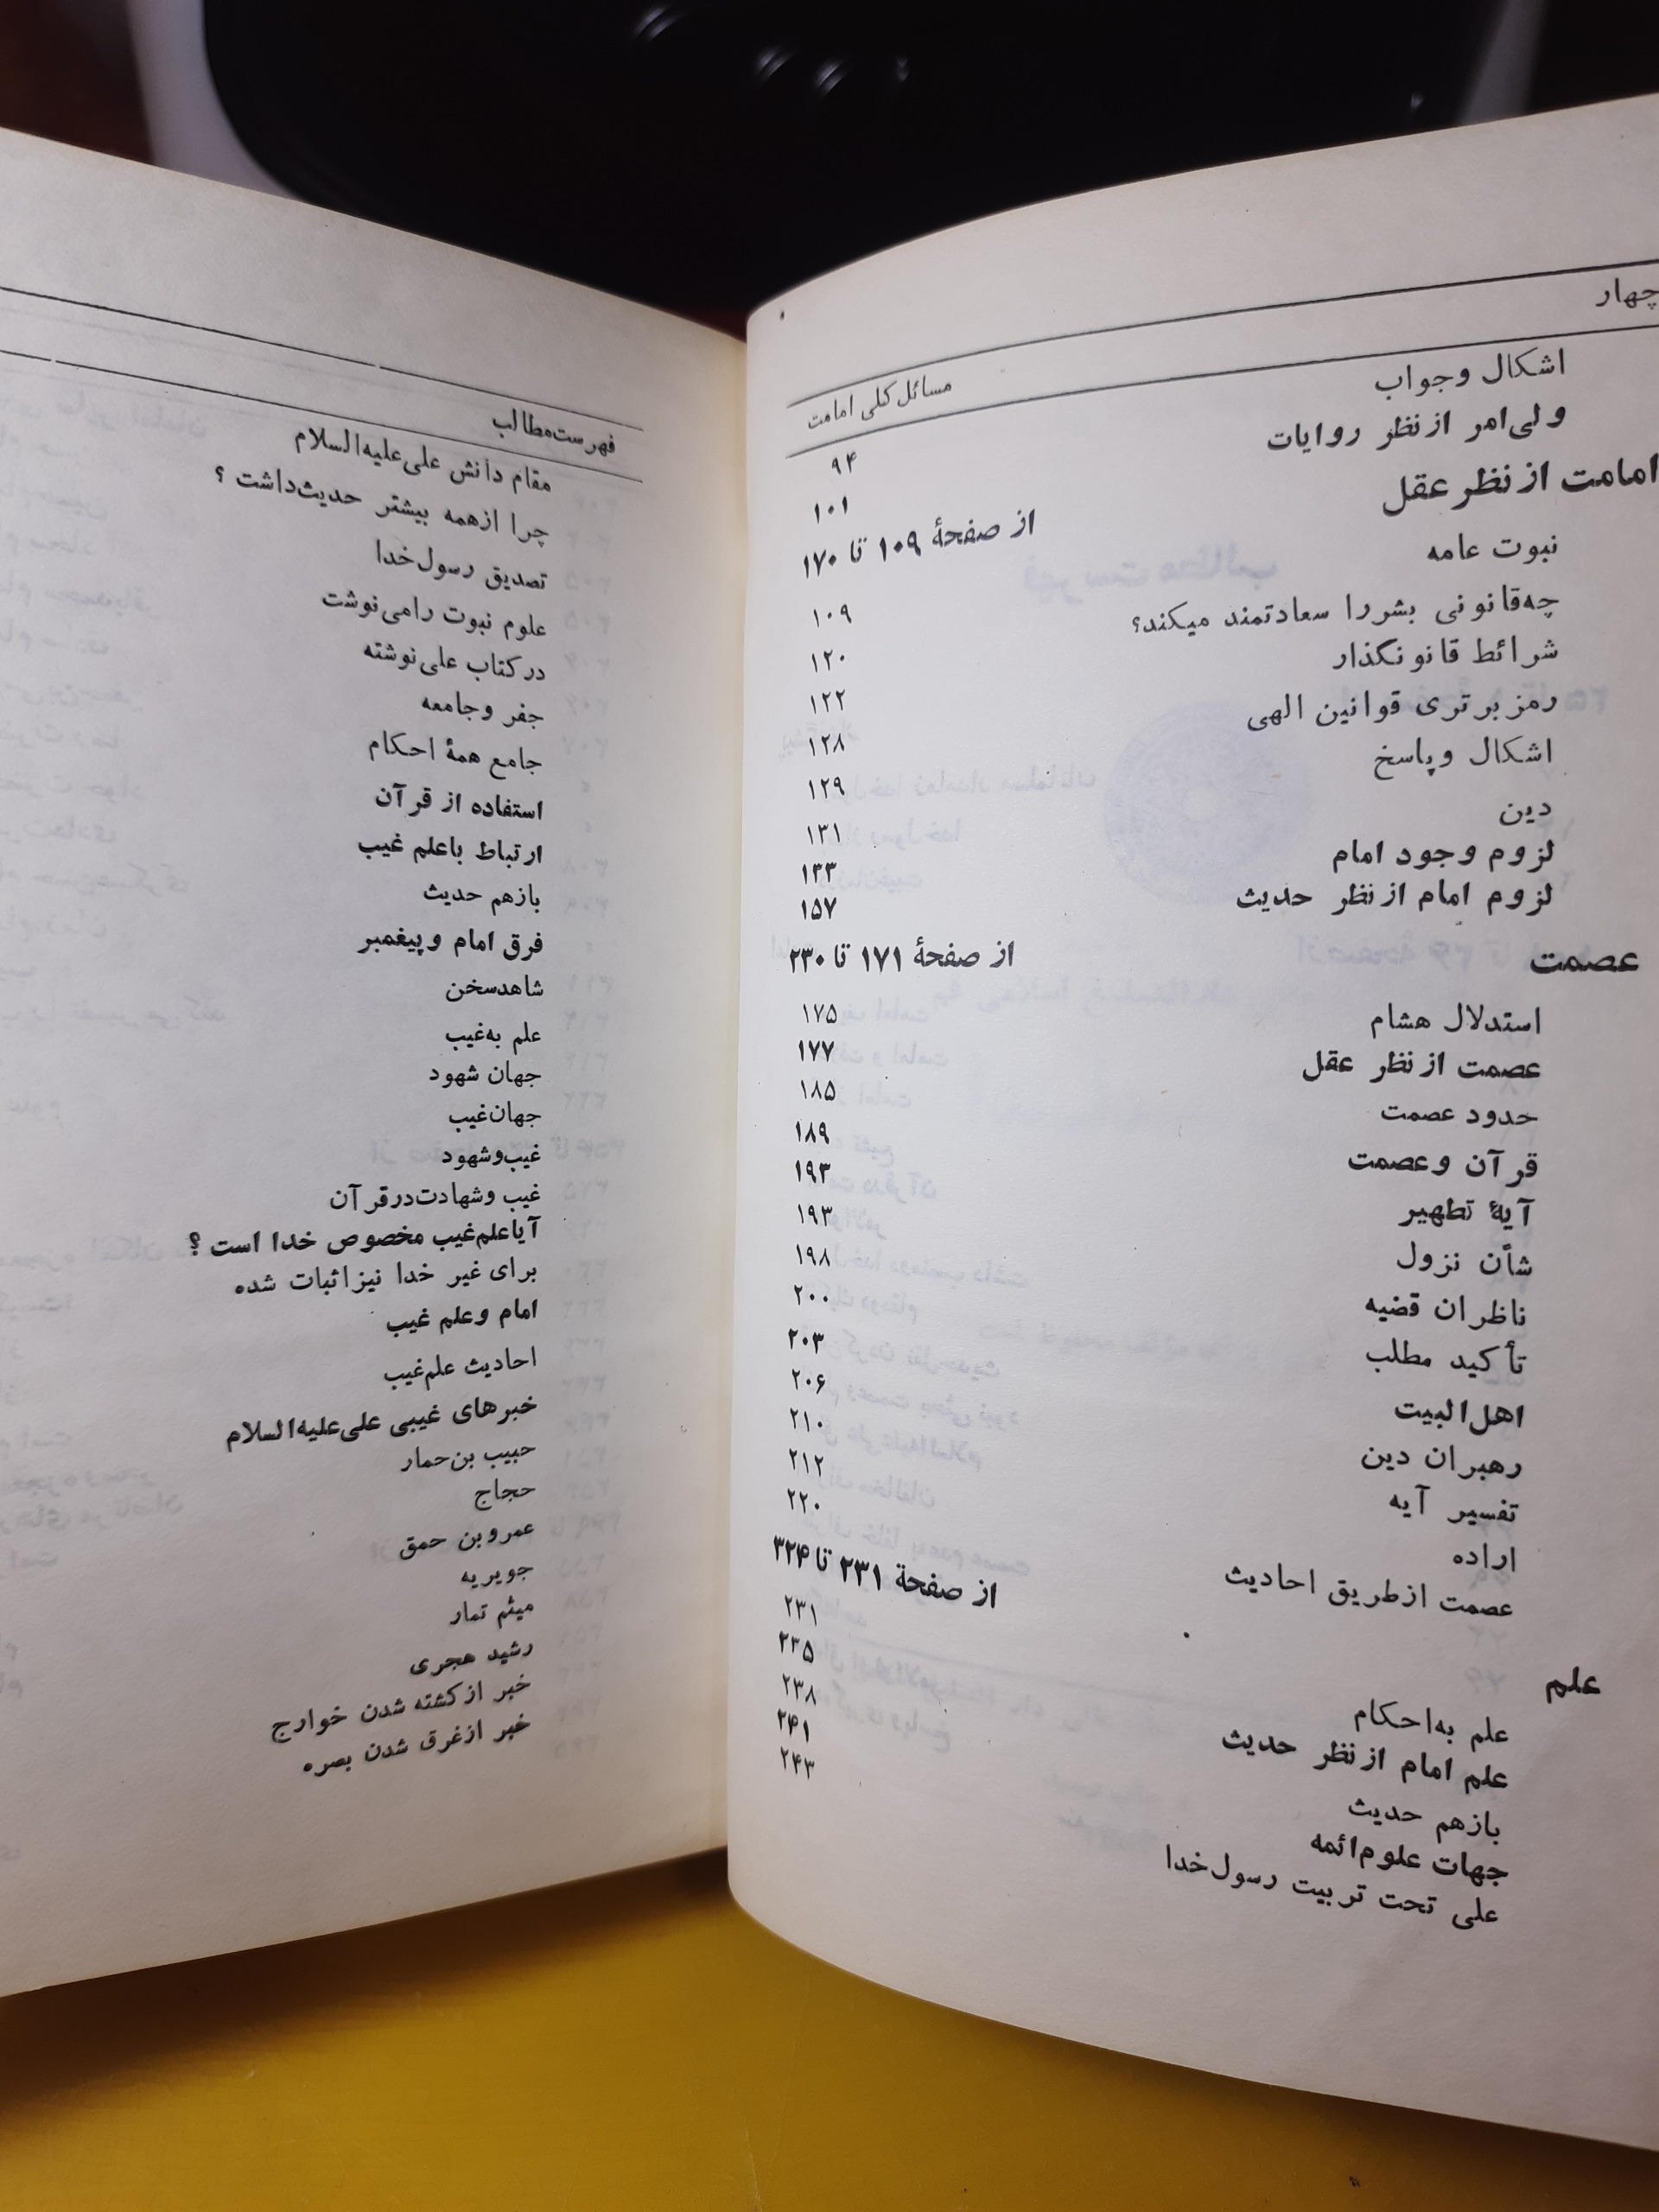 چهار
مسائل کلی امامت
اشکال وجواب ۹۴
ولی‌امر ازنظر روایات ۱۰۱
امامت ازنظر عقل از صفحهٔ ۱۰۹ تا ۱۷۰
نبوت عامه ۱۰۹
چه‌قانونی بشررا سعادتمند میکند؟ ۱۲۰
شرائط قانونگذار ۱۲۲
رمز برتری قوانین الهی ۱۲۸
اشکال وپاسخ ۱۲۹
دین ۱۳۱
لزوم وجود امام ۱۳۳
لزوم امام ازنظر حدیث ۱۵۷
عصمت از صفحهٔ ۱۷۱ تا ۲۳۰
استدلال هشام ۱۷۵
عصمت ازنظر عقل ۱۷۷
حدود عصمت ۱۸۵
قرآن وعصمت ۱۸۹
آیهٔ تطهیر ۱۹۳
شأن نزول ۱۹۳
ناظران قضیه ۱۹۸
تأکید مطلب ۲۰۰
اهل‌البیت ۲۰۳
رهبران دین ۲۰۶
تفسیر آیه ۲۱۰
اراده ۲۱۲
عصمت ازطریق احادیث ۲۲۰
علم از صفحهٔ ۲۳۱ تا ۳۲۴
علم به‌احکام ۲۳۱
علم امام ازنظر حدیث ۲۳۵
بازهم حدیث ۲۳۸
جهات علوم‌ائمه ۲۴۱
علی تحت تربیت رسول‌خدا ۲۴۳
فهرست‌مطالب
مقام دانش علی‌علیه‌السلام
چرا ازهمه بیشتر حدیث‌داشت ؟
تصدیق رسول‌خدا
علوم نبوت رامی‌نوشت
درکتاب علی‌نوشته
جفر وجامعه
جامع همهٔ احکام
استفاده از قرآن
ارتباط باعلم غیب
بازهم حدیث
فرق امام وپیغمبر
شاهدسخن
علم به‌غیب
جهان شهود
جهان‌غیب
غیب‌وشهود
غیب وشهادت‌درقرآن
آیاعلم‌غیب مخصوص خدا است ؟
برای غیر خدا نیزاثبات شده
امام وعلم غیب
احادیث علم‌غیب
خبرهای غیبی علی‌علیه‌السلام
حبیب بن‌حمار
حجاج
عمروبن حمق
جویریه
میثم تمار
رشید هجری
خبر ازکشته شدن خوارج
خبر ازغرق شدن بصره